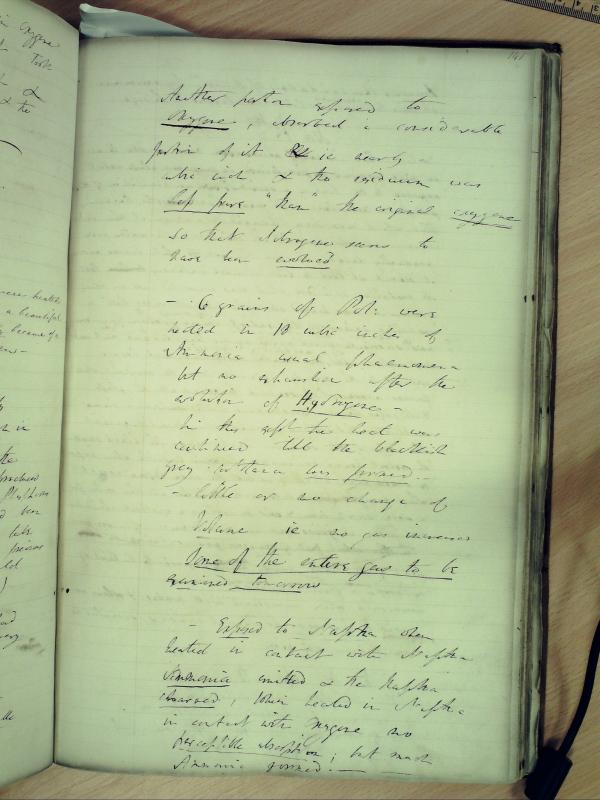 141
Another portion exposed to
oxygene, absorbed a considerable
portion of it ie nearly
cubic inch & the residuum was
less pure "than" the original oxygene
so that Nitrogene seems to
have been evolved
- 6 grains of Pot: were
heated in 18 cubic inches of
Ammonia usual phaenomena
but no exhaustion after the
evolution of Hydrogene -
In this expt the heat was
continued till the blackish
grey substance was formed. -
- little or no change of
Volume ie no gas increases
Some of the entire gas to be
examined tomorrow
- Exposed to Naptha when
heated in contact with Naptha
Ammonia emitted & the Naptha
; when heated in Naptha
in contact with oxygene no
perceptible absorption; but much
Ammonia formed. -
oxygene
Took
&
& the
were heated
a beautiful
because of
in
the
produced
been
precise
)
the